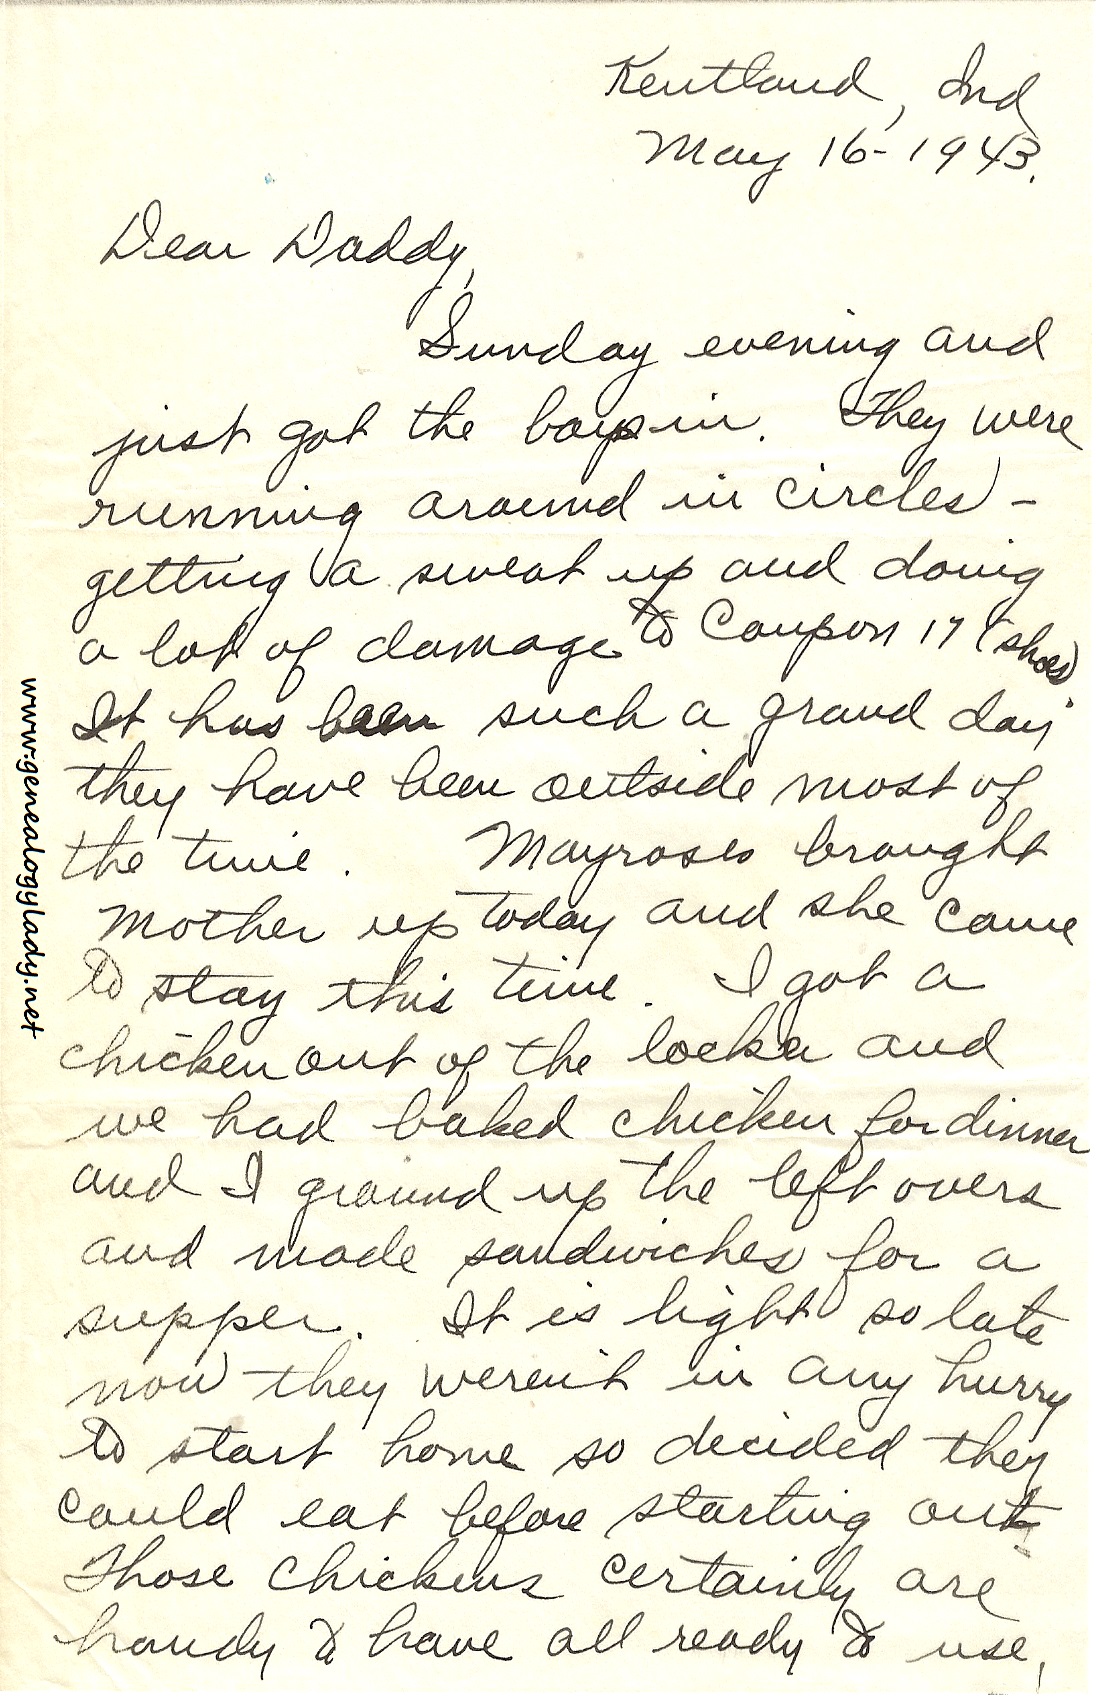 Kentland, Ind
May 16-1943.
Dear Daddy,
Sunday evening and
just got the boys in. They were
running around in circles -
getting a sweat up and doing
a lot of damage to Coupon 17 (shoes).
It has been such a grand day
they have been outside most of
the time. Mayroses brought
Mother up today and she came
to stay this time. I got a
chicken out of the locker and
we had baked chicken for dinner
and I ground up the left overs
and made sandwiches for a
supper. It is light so late
now they weren't in any hurry
to start home so decided they
could eat before starting out.
Those chickens certainly are
handy to have all ready to use,
www.genealogylady.net